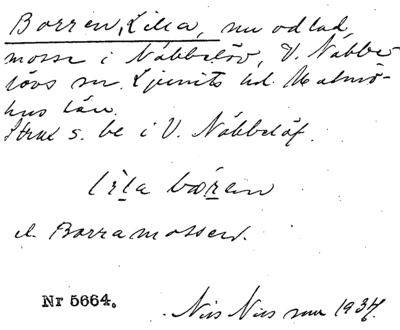 Borren, Lilla, nu odlad
mosse i Näbbelöv, V. Näbbe-
lövs sn. Ljunits hd. Malmö-
hus län.
Strax s. be i V. Näbbelöf.
lila bören
el. Borramossen.
Nr 5664.
Nils Nilsson 1937.